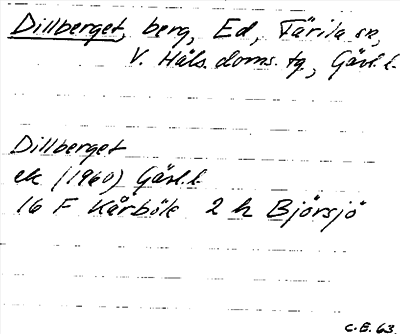 Dillberget, berg, Ed, Färila sn,
V. Häls. doms. tg, Gävl. l.
Dillberget
ek (1960) Gävl. l
16 F Kårböle 2 h Björsjö
C.E. 63.